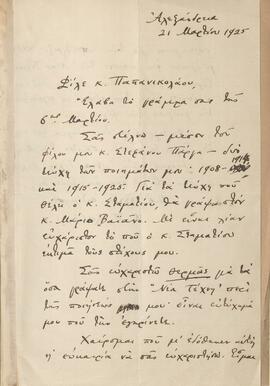 Αλεξάνδρεια
21 Μαρτίου 1925
Φίλε κ. Παπανικολάου,
Έλαβα το γράμμα σας της
6ης Μαρτίου.
Σας στέλνω — μέσον του
φίλου μου κ. Στεφάνου Πάργα — δυο
τεύχη των ποιημάτων μου: 1908-1914
και 1915-1925. Για τα τεύχη που
θέλει ο κ. Σταματίου, θα γράψω στον
κ. Μάριο Βαϊάνο. Με είναι λίαν
ευχάριστο το που ο κ. Σταματίου
εκτιμά τους στίχους μου.
Σας ευχαριστώ θερμώς για τα
όσα γράψατε στην "Νέα Τέχνη" περί
της ποιήσεώς μου· είναι ευτύχημά
μου που την εγκρίνετε.
Χαίρομαι που μ' εδόθηκεν αυτή
η ευκαιρία να σας ευχαριστήσω. Είμαι